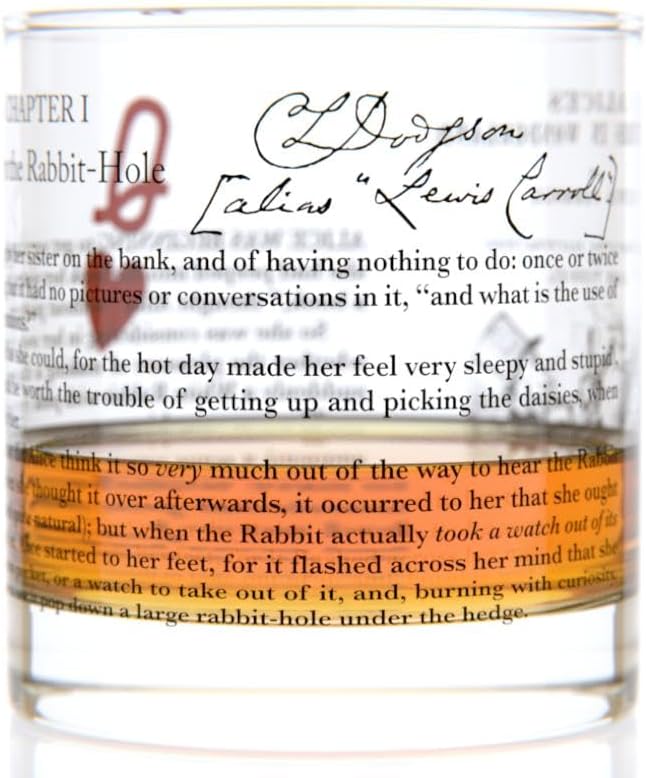 CHAPTER I
the Rabbit-Hole
CLDodgson
[alias "Lewis Carroll"]
her sister on the bank, and of having nothing to do: once or twice
it had no pictures or conversations in it, “and what is the use of
she could, for the hot day made her feel very sleepy and stupid,
be worth the trouble of getting up and picking the daisies, when
Alice think it so very much out of the way to hear the Rabbit
thought it over afterwards, it occurred to her that she ought
natural); but when the Rabbit actually took a watch out of its
Alice started to her feet, for it flashed across her mind that she
or a watch to take out of it, and, burning with curiosity,
pop down a large rabbit-hole under the hedge.